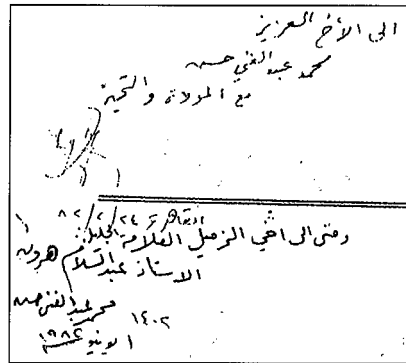 الى الأخ العزيز
محمد عبد الغني حسن
مع المودة والتحية
القاهرة ٢٤/٢/٨٢
ومنى الى اخي الزميل العلامة الجليل
الاستاذ عبد السلام هرون
محمد عبد الغني حسن
١٤٠٢
١ يونيو ١٩٨٢